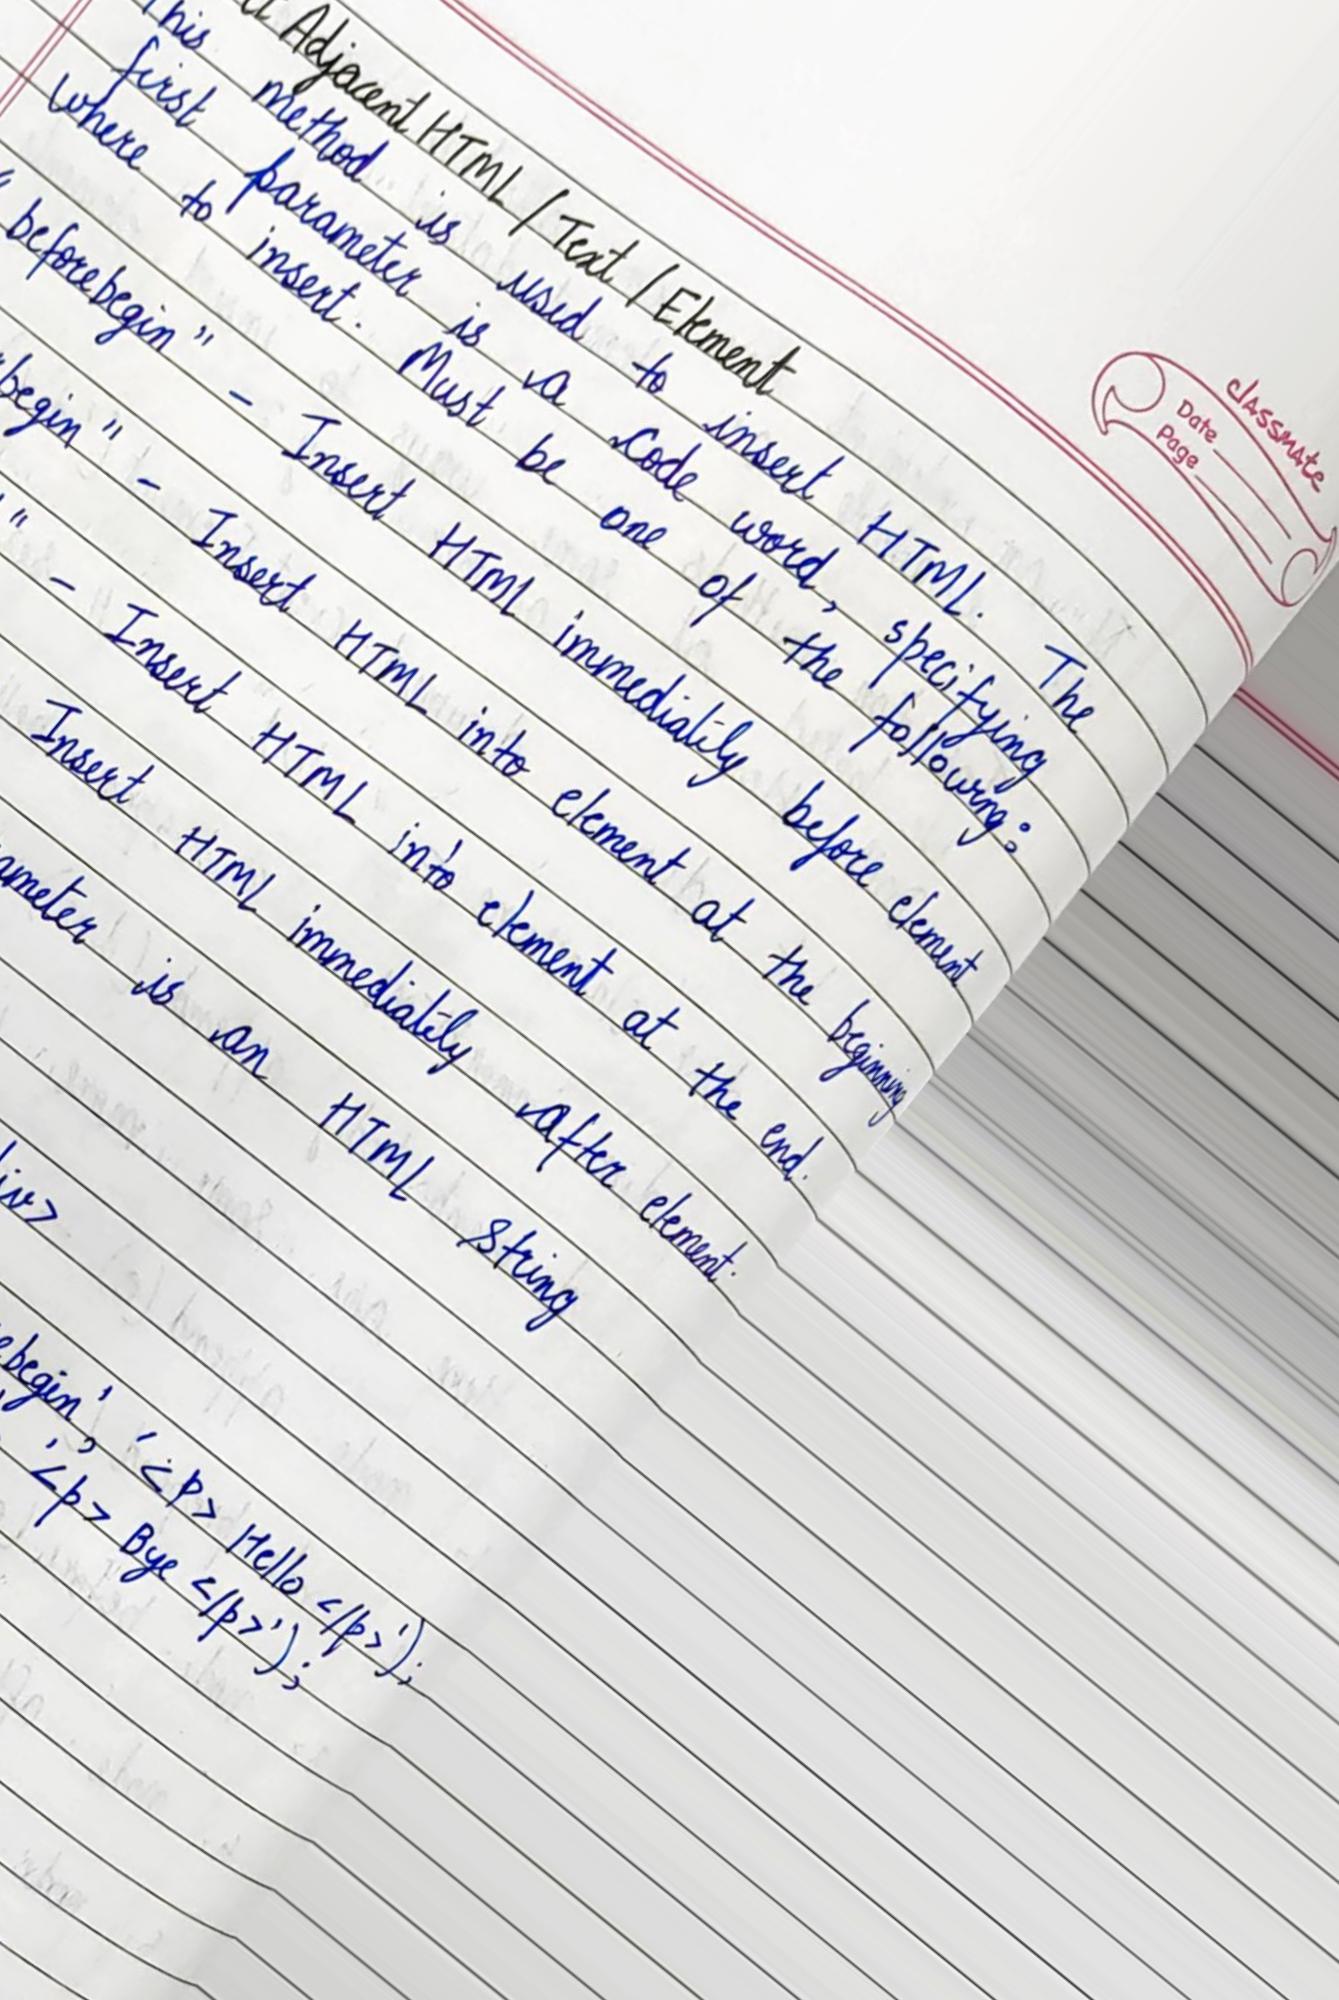 Adjacent HTML / Text / Element
This method is used to insert HTML. The
first parameter is a code word, specifying
where to insert. Must be one of the following:
"beforebegin" - Insert HTML immediatily before element
begin" - Insert HTML into element at the beginning
" - Insert HTML into element at the end.
Insert HTML immediatily after element.
ameter is an HTML string
iv>
ebegin', '<p> Hello </p>');
, '<p> Bye </p>');
classmate
Date
Page